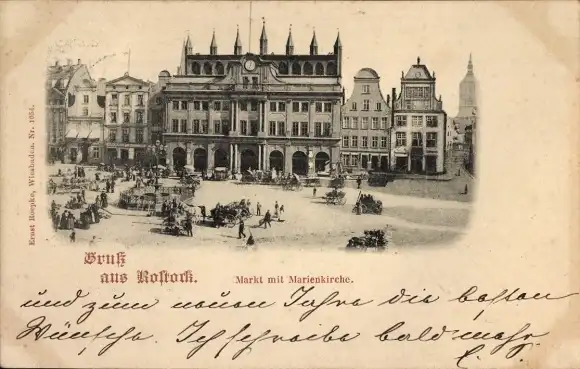 Ernst Roepke, Wiesbaden. Nr. 1054.
Gruß
aus Rostock.
Markt mit Marienkirche.
und zum neuen Jahre die besten
Wünsche. Ich schreibe bald mehr.